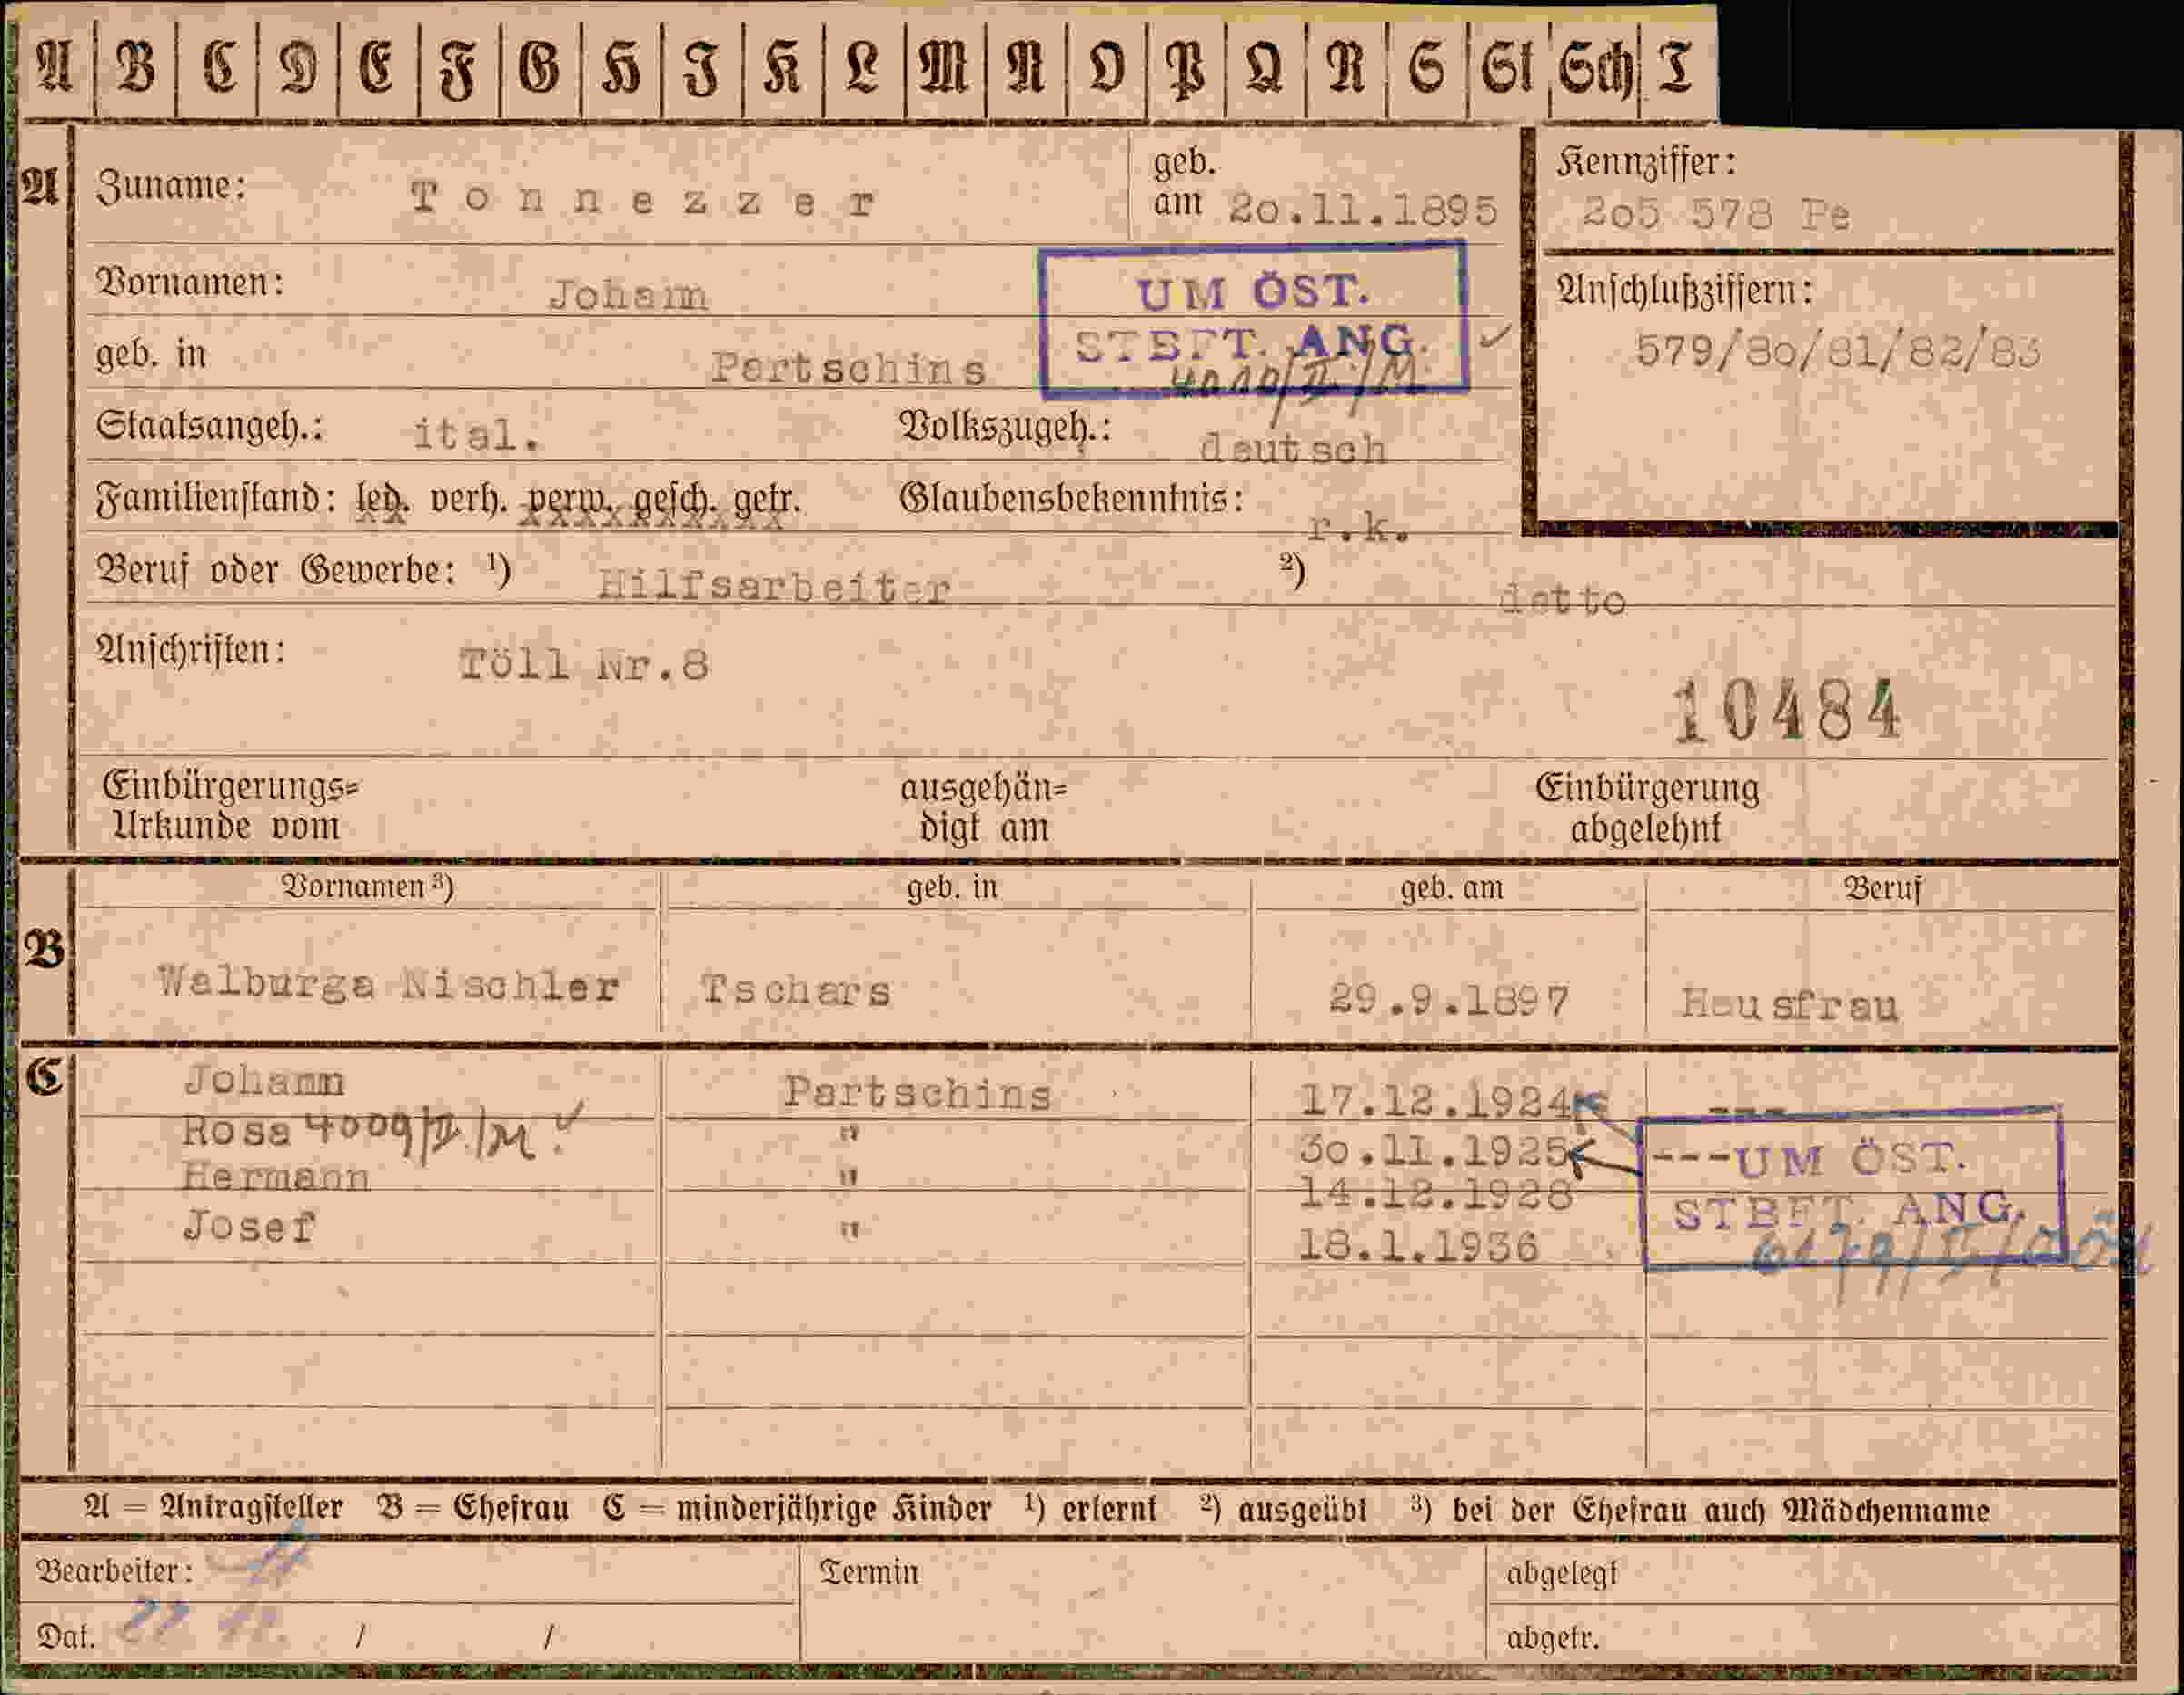 A B C D E F G H I K L M N O P Q R S St Sch T
A Zuname: Tonnezzer geb. am 20.11.1895 Kennziffer: 205 578 Pe
Vornamen: Johann UM ÖST. Anschlußziffern:
STBFT. ANG. 579/80/81/82/83
geb. in Partschins 4010/II/M.
Staatsangeh.: ital. Volkszugeh.: deutsch
Familienstand: led. verh. verw. gesch. getr. Glaubensbekenntnis: r.k.
Beruf oder Gewerbe: ¹) Hilfsarbeiter ²) detto
Anschriften: Töll Nr.8
10484
Einbürgerungs= ausgehän= Einbürgerung
Urkunde vom digt am abgelehnt
Vornamen ³) geb. in geb. am Beruf
B Walburga Nischler Tschars 29.9.1897 Hausfrau
C Johann Partschins 17.12.1924 ---
Rosa 4009/II/M " 30.11.1925 --- UM ÖST.
Hermann " 14.12.1928 STBFT. ANG.
Josef " 18.1.1936
A = Antragsteller B = Ehefrau C = minderjährige Kinder ¹) erlernt ²) ausgeübt ³) bei der Ehefrau auch Mädchenname
Bearbeiter: Termin abgelegt
Dat. / / abgetr.